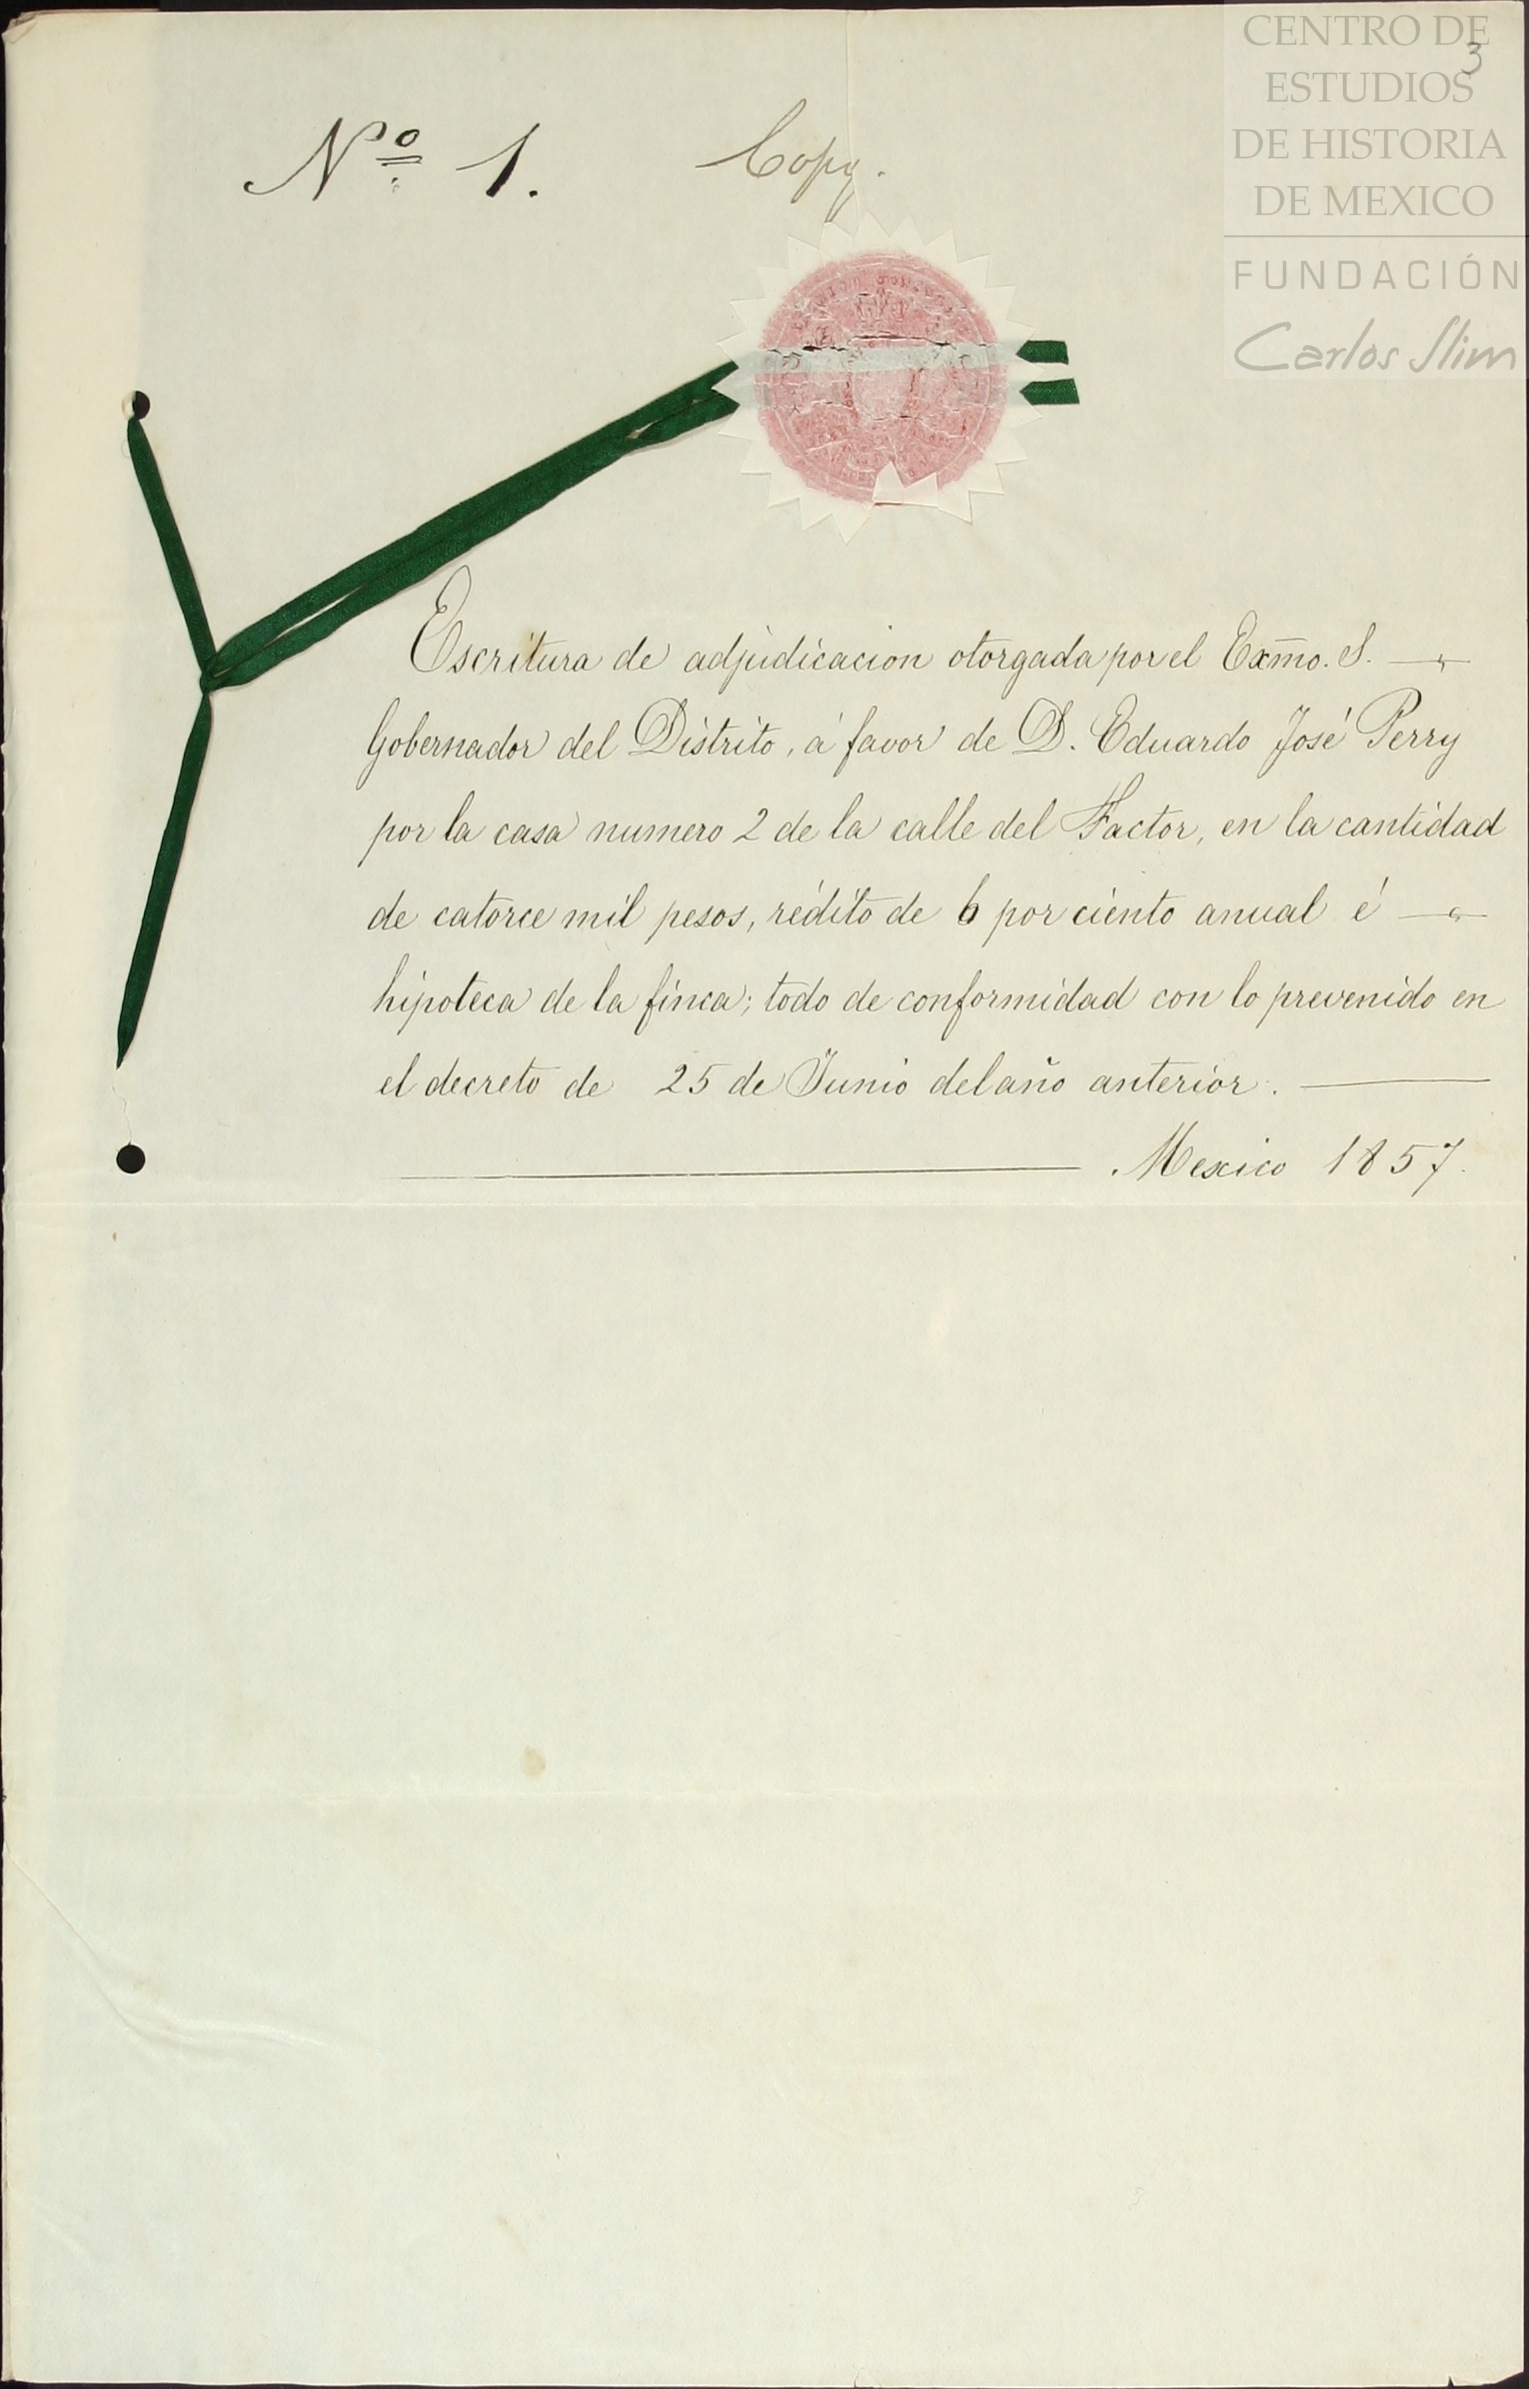 CENTRO DE
ESTUDIOS
DE HISTORIA
DE MEXICO
FUNDACIÓN
Carlos Slim
3
Nº 1. Copy.
Escritura de adjudicacion otorgada por el Exmo. S.
Gobernador del Distrito, á favor de D. Eduardo José Perry
por la casa numero 2 de la calle del Factor, en la cantidad
de catorce mil pesos, rédito de 6 por ciento anual é
hipoteca de la finca; todo de conformidad con lo prevenido en
el decreto de 25 de Junio del año anterior.
Mexico 1857.